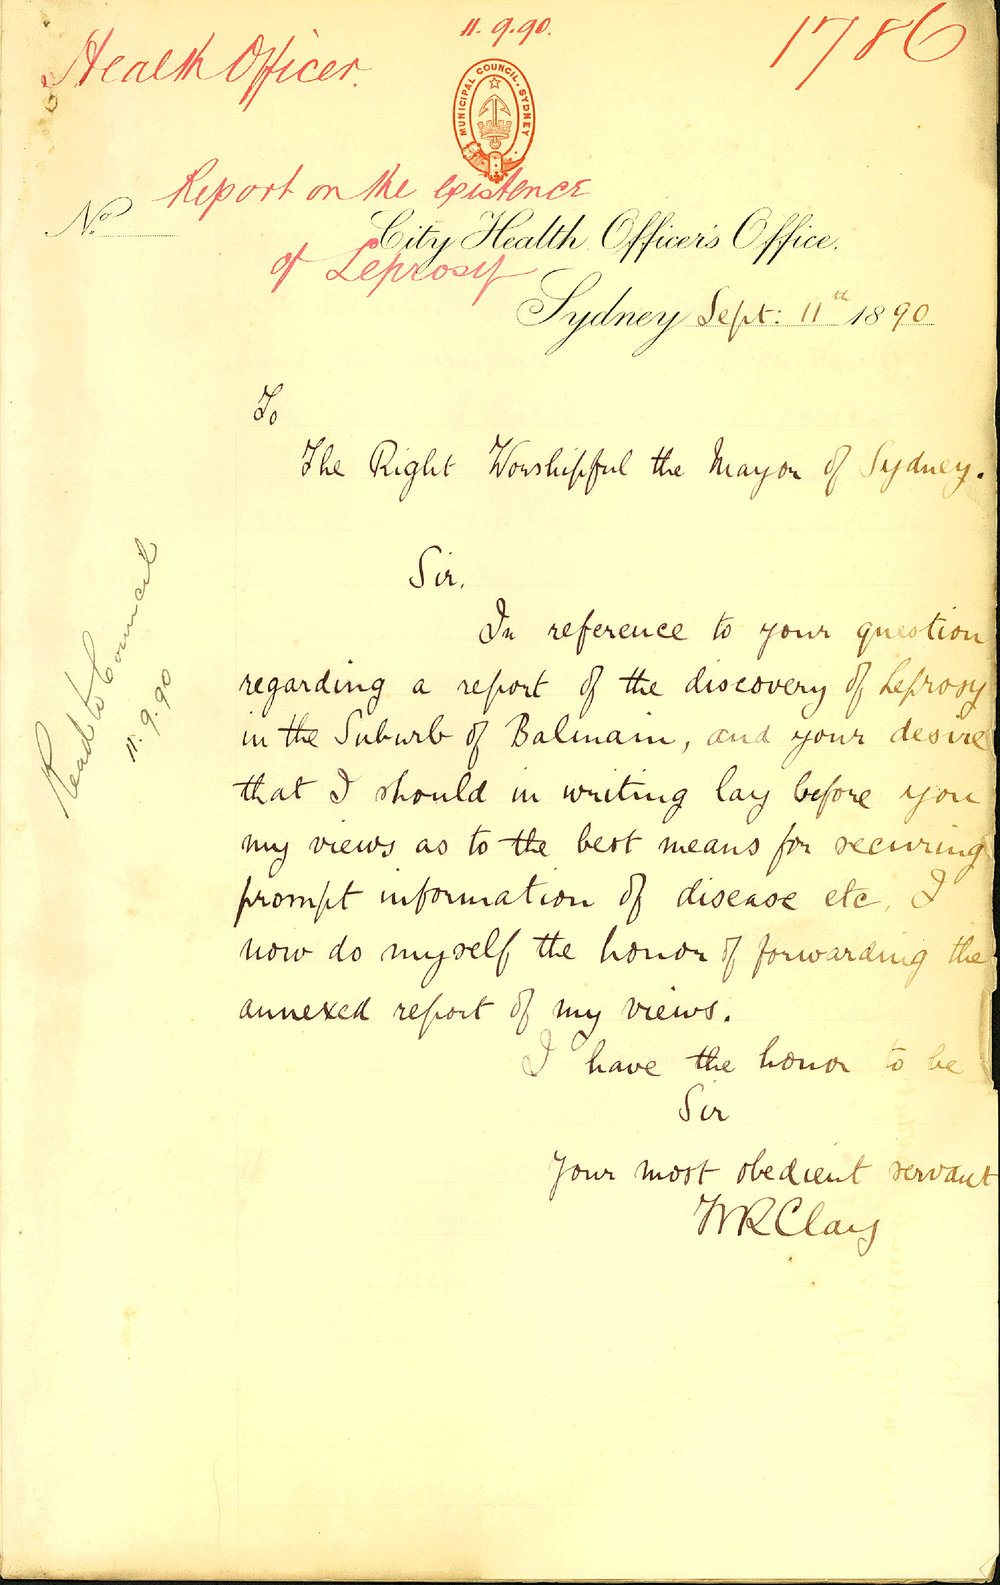 11.9.90.
1786
Health Officer.
MUNICIPAL COUNCIL. SYDNEY
Report on the existence
of Leprosy
No.
City Health Officer's Office.
Sydney Sept: 11th 1890
To
The Right Worshipful the Mayor of Sydney.
Sir.
In reference to your question
regarding a report of the discovery of Leprosy
in the Suburb of Balmain, and your desire
that I should in writing lay before you
my views as to the best means for securing
prompt information of disease etc. I
now do myself the honor of forwarding the
annexed report of my views.
I have the honor to be
Sir
Your most obedient servant
WR Clay
Read to Council
11.9.90